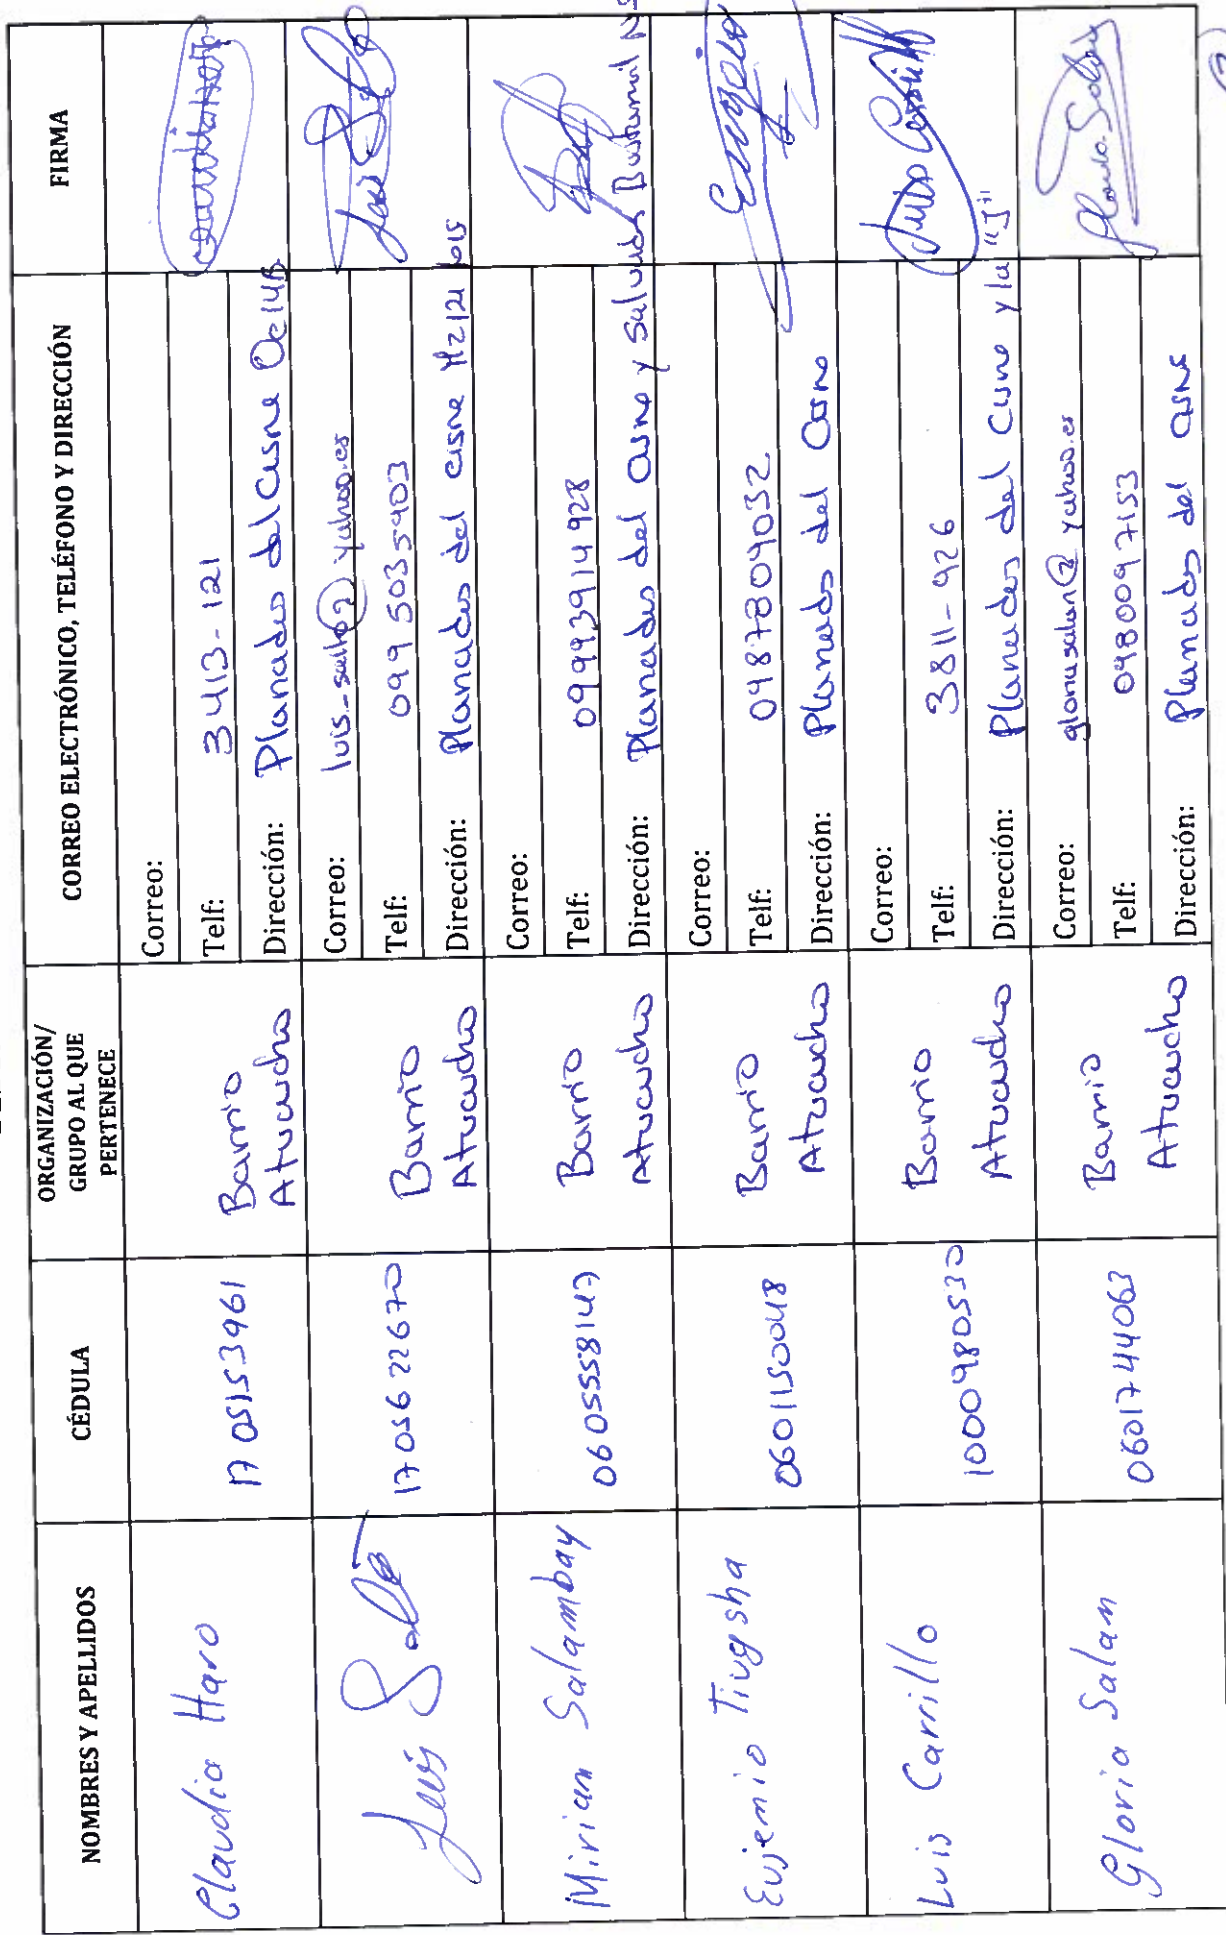 NOMBRES Y APELLIDOS
CÉDULA
ORGANIZACIÓN/
GRUPO AL QUE
PERTENECE
CORREO ELECTRÓNICO, TELÉFONO Y DIRECCIÓN
FIRMA
Claudia Haro
1705153961
Barrio
Atucucho
Correo:
Telf: 3413-121
Dirección: Planadas del Cisne Oe14B
Luis
1705622670
Barrio
Atucucho
Correo: yahoo.es
Telf: 0995035403
Dirección: Planadas del cisne Mz121 bis
Luis
Mirian Salambay
0605558147
Barrio
Atucucho
Correo:
Telf: 09993914928
Dirección: Planadas del Cisne y Salvador Bustamil
Eujemio Tiugsha
0601150048
Barrio
Atucucho
Correo:
Telf: 0987809032
Dirección: Planadas del Cisne
Luis Carrillo
1000980530
Barrio
Atucucho
Correo:
Telf: 3811-926
Dirección: Planadas del Cisne y la "J"
Gloria Salan
0601744063
Barrio
Atucucho
Correo: gloriasalan@yahoo.es
Telf: 0980097153
Dirección: Planadas del Cisne